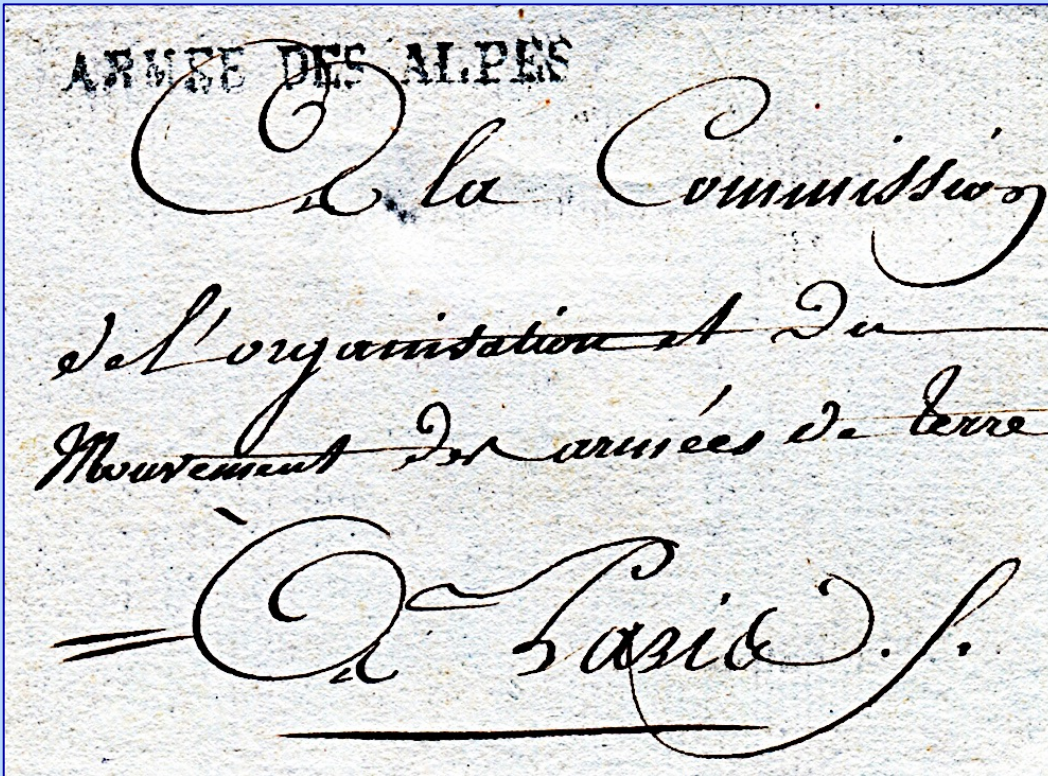 ARMEE DES ALPES
A la Commission
de l'organisation et du
Mouvement des armées de terre
À Paris.